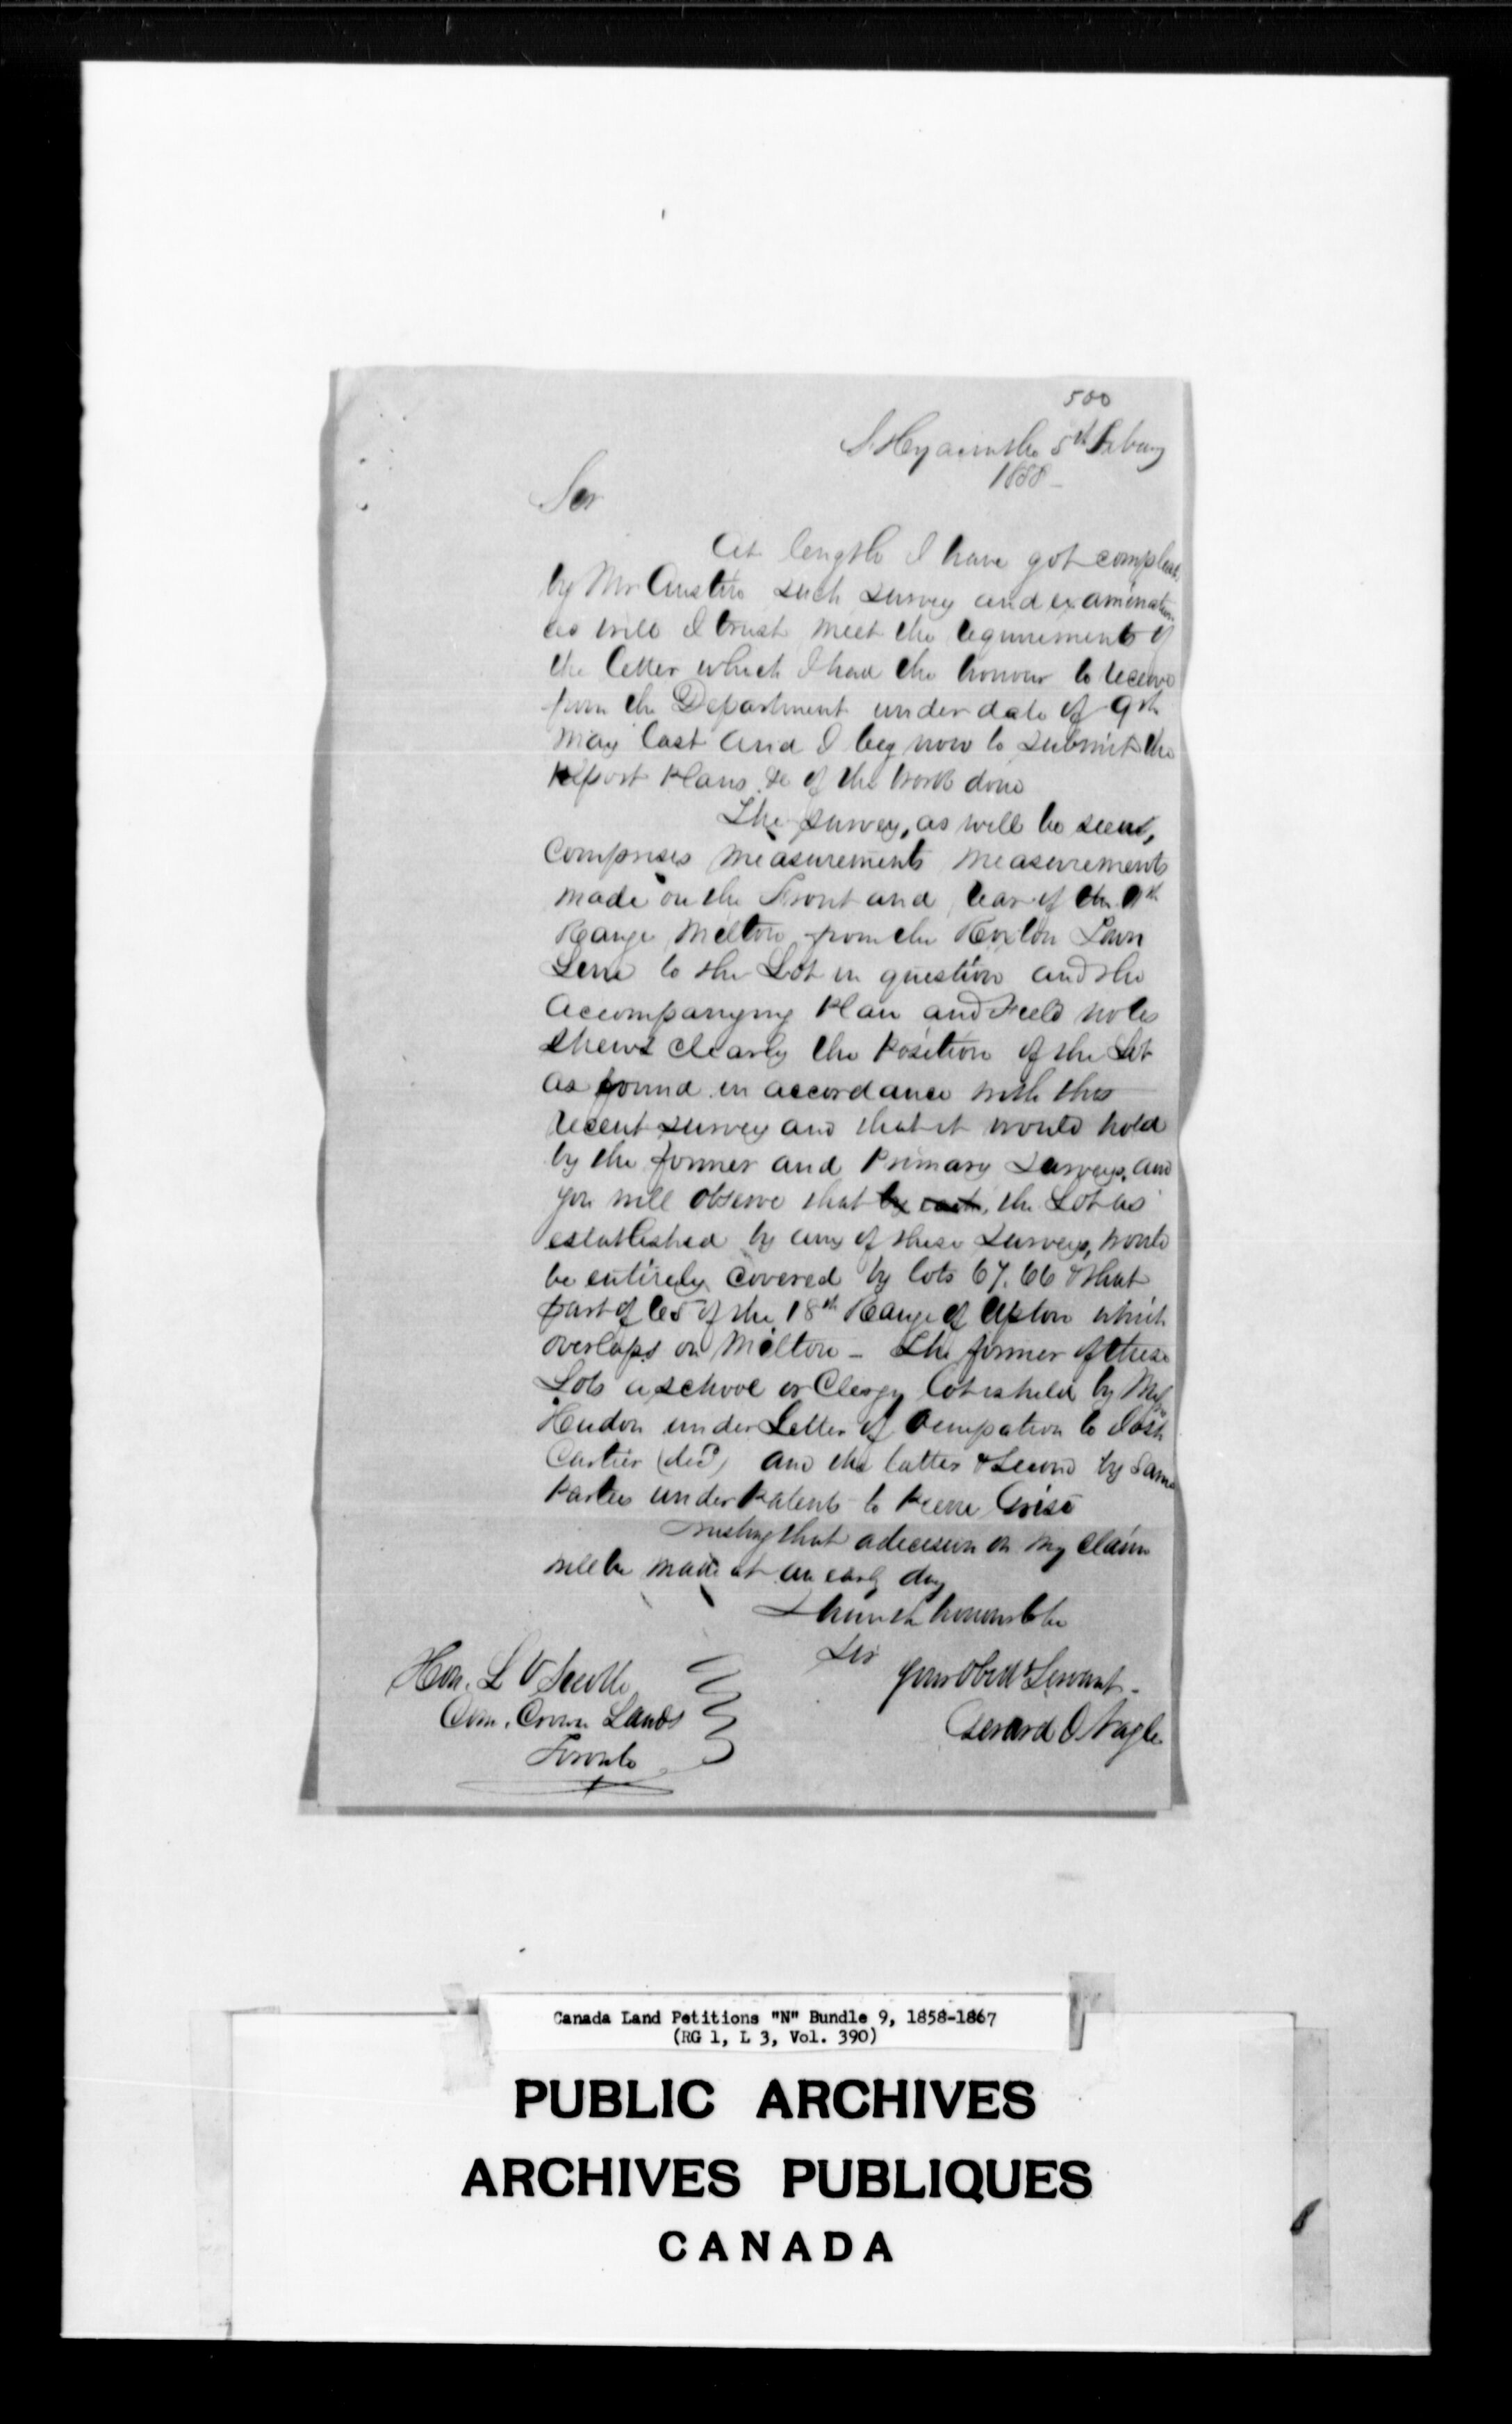 500
St Hyacinthe 5th Febuary
1858 -
Sir
At length I have got compleat
by Mr Austin such survey and examination
as will I trust meet the requirements of
the letter which I had the honour to receive
from the Department under date of 9th
May last and I beg now to submit the
report plans &c of the work done
The survey, as will be seen,
comprises measurements measurements
made on the Front and rear of the
Range Milton from the Roxton Town
Line to the Lot in question and the
accompanying plan and Field notes
shews clearly the position of the Lot
as found in accordance with this
recent survey and that it would hold
by the former and primary surveys, and
you will observe that by each, the Lot as
established by any of these surveys, would
be entirely covered by lots 67. 66 & that
part of 65 of the 18th Range of Upton which
overlaps on Milton - The former of these
Lots a school or Clergy Lot is held by
Heudon under Letter of Occupation to Josh
Cartier (decd) and the latter & second by same
parties under patents to Pierre Grisé
Trusting that a decision on my claim
will be made at an early day
I have the honour to be
Sir
Your Obedt Servant -
Gerard O Nagle
Hon. L V Sicotte
Com. Crown Lands
Toronto
Canada Land Petitions "N" Bundle 9, 1858-1867
(RG 1, L 3, Vol. 390)
PUBLIC ARCHIVES
ARCHIVES PUBLIQUES
CANADA